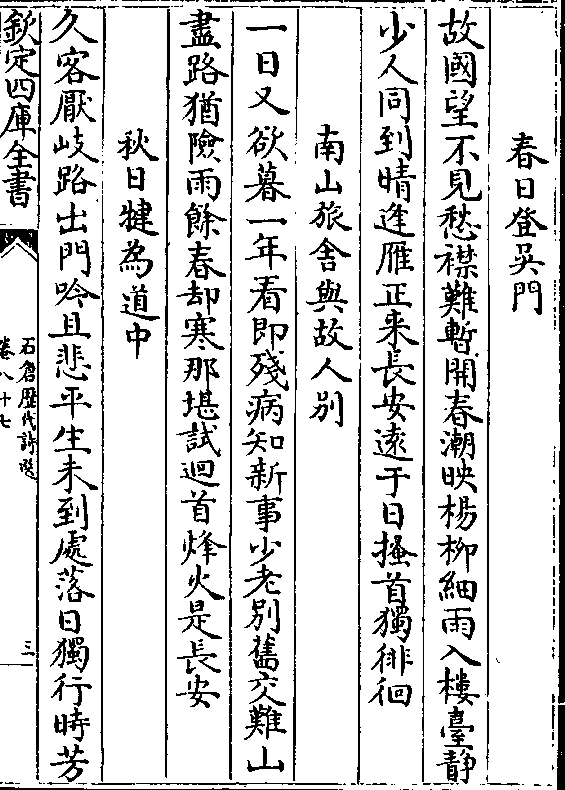 春日登吳門
故國望不見愁襟難暫開春潮映楊柳細雨入樓臺靜
少人同到晴逢雁正来長安遠于日搔首獨徘徊
南山旅舍與故人别
一日又欲暮一年看即殘病知新事少老别舊交難山
盡路猶險雨餘春却寒那堪試迴首烽火是長安
秋日犍為道中
久客厭岐路出門吟且悲平生未到處落日獨行時芳
欽定四庫全書
石倉歷代詩選
卷八十七
三